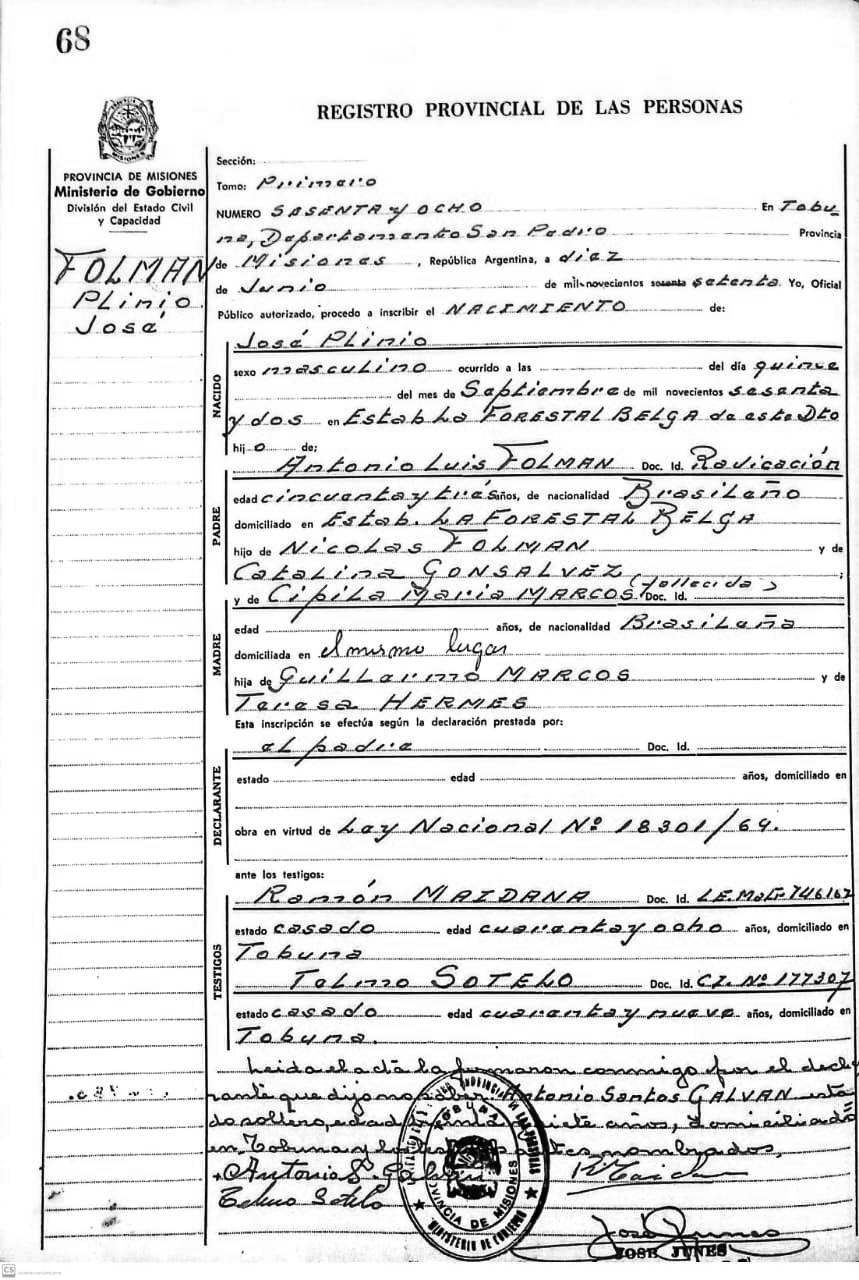 68
REGISTRO PROVINCIAL DE LAS PERSONAS
MISIONES
PROVINCIA DE MISIONES
Ministerio de Gobierno
División del Estado Civil
y Capacidad
FOLMAN
PLinio
José
Sección:
Tomo: Primero
NUMERO SESENTA y OCHO En Tobu
na, Departamento San Pedro Provincia
de Misiones, República Argentina, a diez
de Junio de mil novecientos sesenta setenta. Yo, Oficial
Público autorizado, procedo a inscribir el NACIMIENTO de:
NACIDO
José PLinio
sexo masculino ocurrido a las del día quince
del mes de Septiembre de mil novecientos sesenta
y dos en Estab La FORESTAL BELGA de este Dto
hij o de;
PADRE
Antonio Luis FOLMAN Doc. Id. Radicación
edad cincuenta y tres años, de nacionalidad Brasileño
domiciliado en Estab. LA FORESTAL BELGA
hijo de Nicolas FOLMAN y de
Catalina GONSALVEZ ;
MADRE
y de Cipila Maria MARCOS (fallecida) Doc. Id.
edad años, de nacionalidad Brasileña
domiciliada en el mismo lugar
hija de Guillermo MARCOS y de
Teresa HERMES
Esta inscripción se efectúa según la declaración prestada por:
DECLARANTE
el padre Doc. Id.
estado edad años, domiciliado en
obra en virtud de Ley Nacional Nº 18301/69.
ante los testigos:
TESTIGOS
Ramón MAIDANA Doc. Id. L.E. 746162
estado casado edad cuarenta y ocho años, domiciliado en
Tobuna
Telmo SOTELO Doc. Id. C.I. Nº 177307
estado casado edad cuarenta y nueve años, domiciliado en
Tobuna.
Leida el acta la firmaron conmigo por el decla
rante que dijo no saber: Antonio Santos GALVAN esta
do soltero, edad siete años, domiciliado
en Tobuna y los nombrados,
Antonio S. Galván
Telmo Sotelo
TOBUNA
PROVINCIA DE MISIONES
MINISTERIO DE GOBIERNO
José Junes
JOSE JUNES
CS